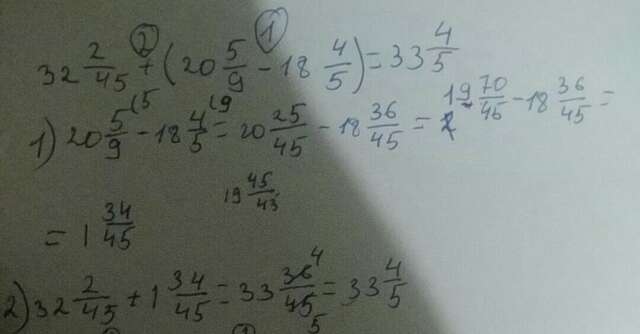 ② ①
32 2/45 + (20 5/9 - 18 4/5) = 33 4/5
1) 20 5/9 (5 - 18 4/5 (9 = 20 25/45 - 18 36/45 = 19 70/45 - 18 36/45 =
19 45/45
= 1 34/45
2) 32 2/45 + 1 34/45 = 33 36/45 4 5 = 33 4/5